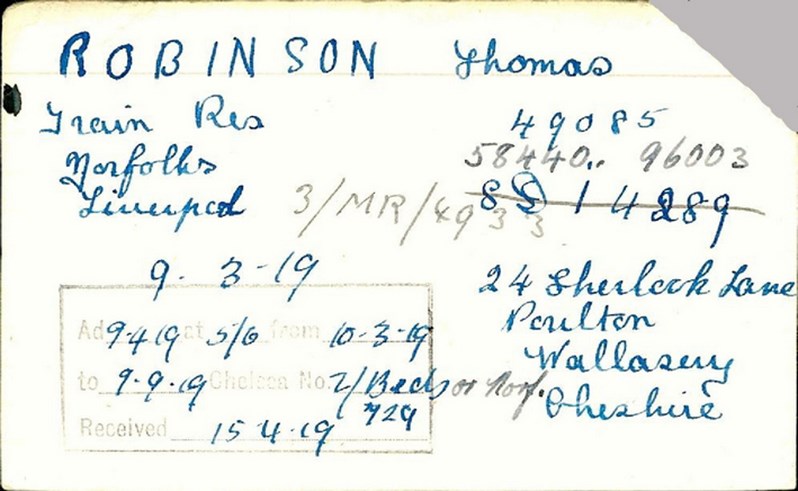 ROBINSON Thomas
Train Res 49085
Norfolks 58440.. 96003
Liverpool 3/MR/4933 14289
9. 3-19
24 Sherlock Lane
Poulton
Wallasey
Cheshire
Ad 9-4-19 at 5/6 from 10-3-19
to 9.9.19 Chelsea No. 2/Beds or Norf.
729
Received 15 4.19